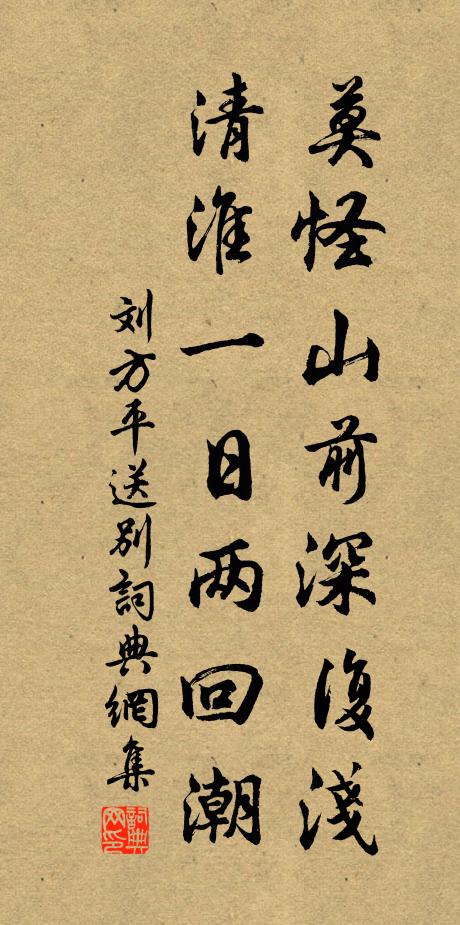 莫怪山前深復淺
清淮一日两回潮
刘方平送别詞典網集
詞典网印